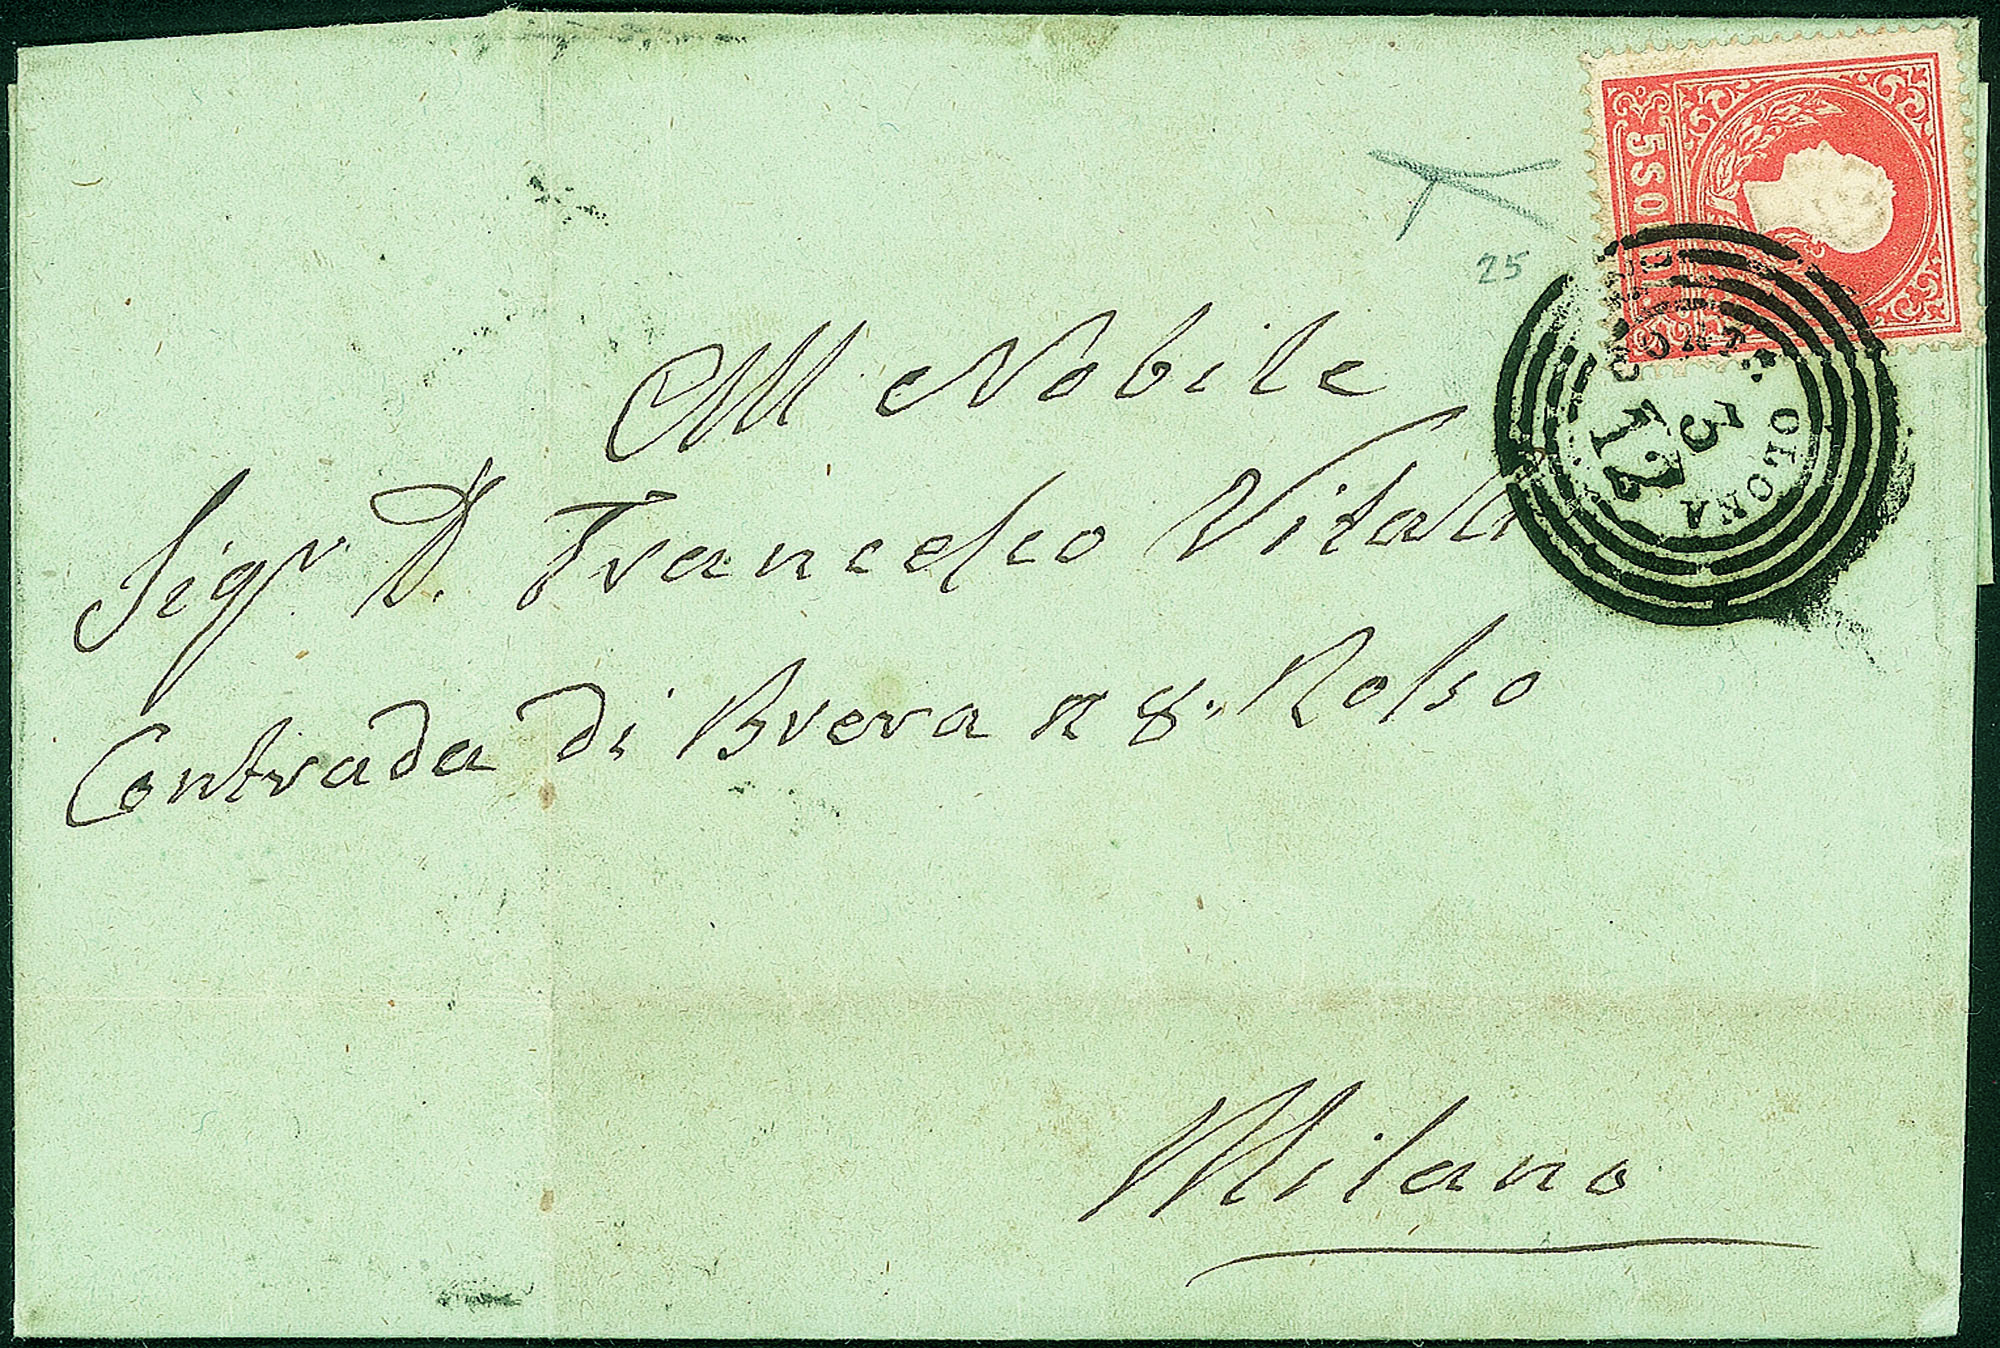 5 SOLDI
25
CORTE OLONA
3
12
All Nobile
Sigr. D. Francesco Vitali
Contrada di Brera n 8. Rosso
Milano